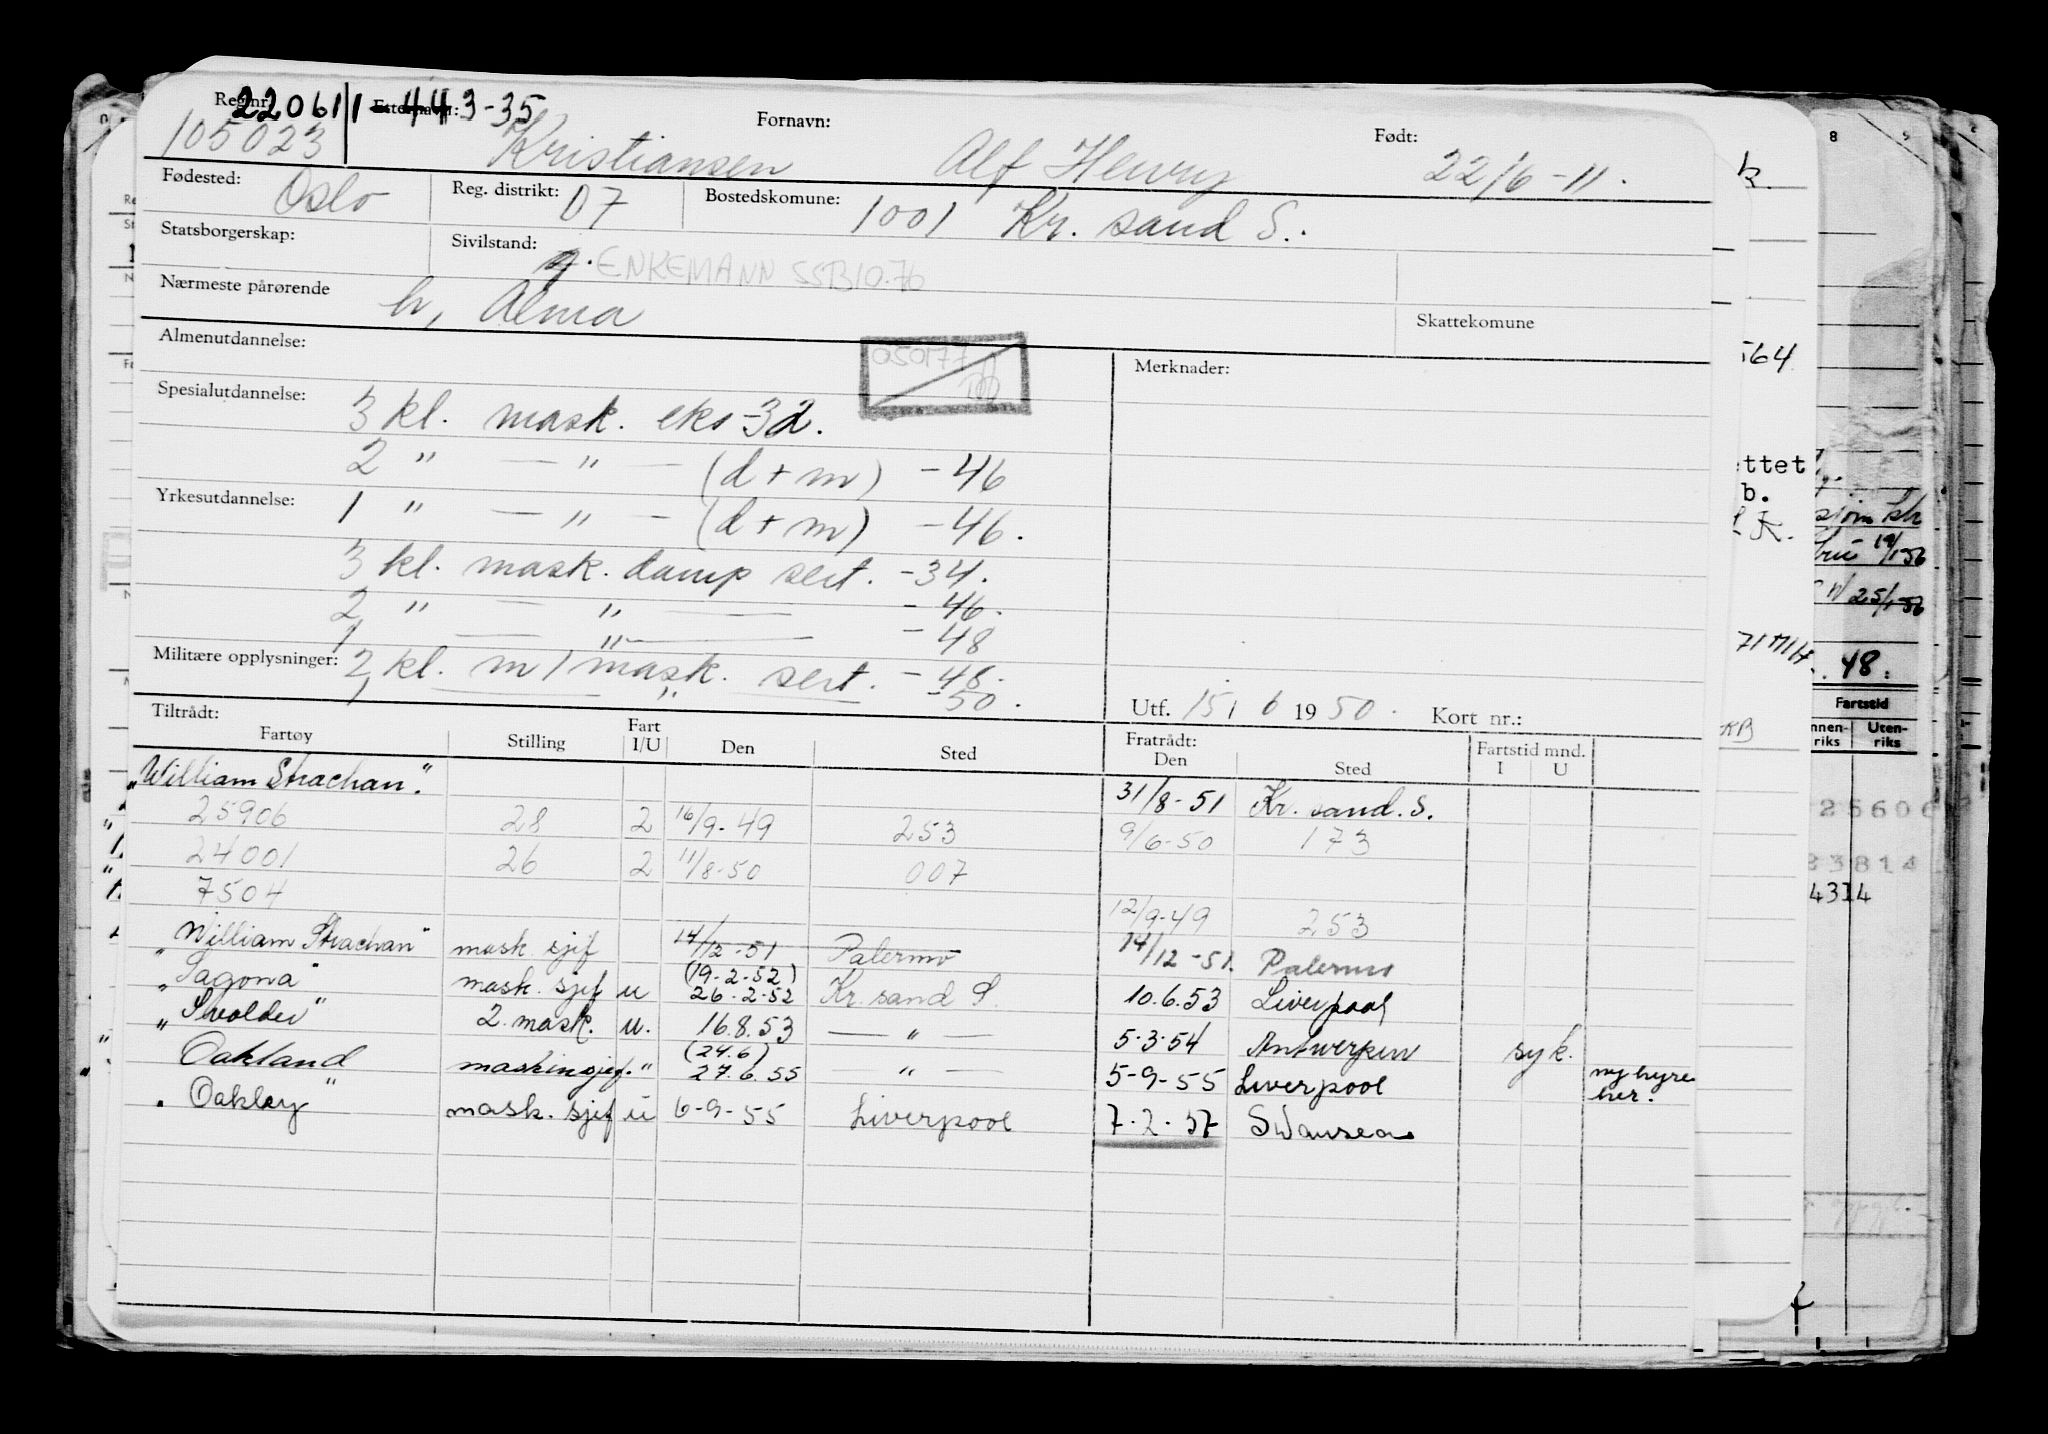 Reg.nr. 220611-443-35 Etternavn: Fornavn: Født:
105023 Kristiansen Alf Henry 22/6-11.
Fødested: Oslo Reg. distrikt: 07 Bostedskomune: 1001 Kr. sand S.
Statsborgerskap: Sivilstand: g. ENKEMANN SSB10.76
Nærmeste pårørende h, Alma Skattekomune
Almenutdannelse: 050177 Merknader:
Spesialutdannelse: 3 kl. mask. eks -32.
2 " — " — (d+m) -46
Yrkesutdannelse: 1 " — " — (d+m) -46.
3 kl. mask. damp sert. -34.
2 " — " — -46.
1 — " — -48
Militære opplysninger: 2 kl. m/mask. sert. -48.
1 — " — -50.
Utf. 15/6 1950. Kort nr.:
Tiltrådt: Fratrådt: Fartstid mnd.
Fartøy Stilling Fart I/U Den Sted Den Sted I U
"William Strachan". 31/8-51 Kr. sand. S.
25906 28 2 16/9-49 253 9/6-50 173
24001 26 2 11/8-50 007
7504 12/9-49 253
William Strachan" mask. sjef 14/12-51 Palermo 14/12-51. Palermo
"Sagona" mask. sjef u (19-2-52) 26-2-52 Kr. sand S. 10.6.53 Liverpool
"Svolder" 2. mask. u. 16.8.53 — " — 5.3.54 Antwerpen syk.
"Oakland maskinsjef. " (24.6) 27.6.55 — " — 5-9-55 Liverpool ny hyre her.
"Oakley" mask. sjef u 6-9-55 Liverpool 7.2.57 Swansea
8 9
k.
564
ttet
b.
48.
Fartstid
Innenriks Utenriks
KB
25606
23814
4314